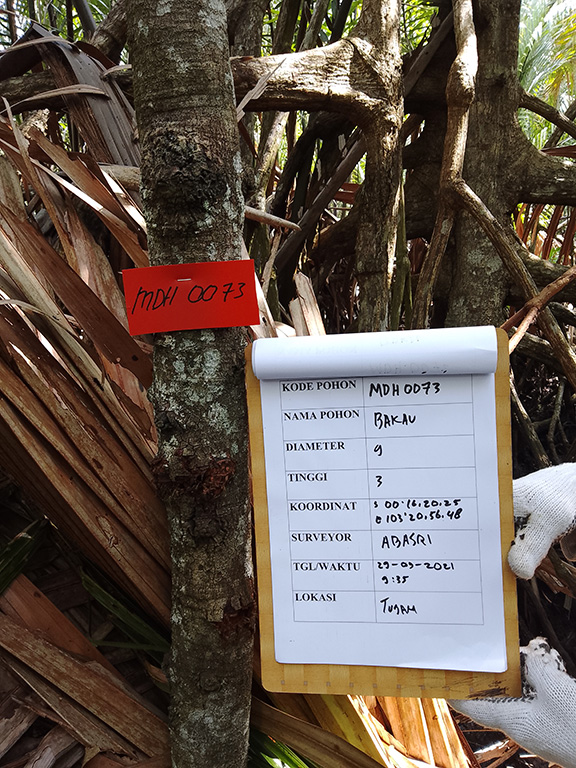 MDH 0073
KODE POHON MDH0073
NAMA POHON BAKAU
DIAMETER 9
TINGGI 3
KOORDINAT S 00°16.20.25
E 103°20.56.48
SURVEYOR ABASRI
TGL/WAKTU 29-09-2021
9:35
LOKASI